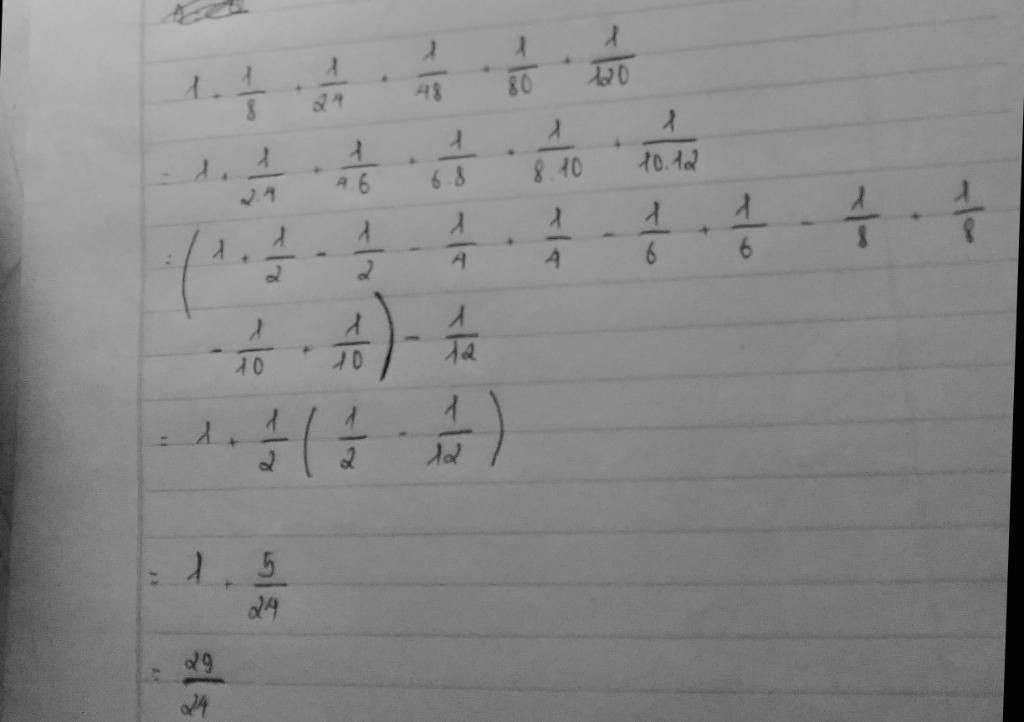 1 + 1/8 + 1/24 + 1/48 + 1/80 + 1/120
= 1 + 1/2.4 + 1/4.6 + 1/6.8 + 1/8.10 + 1/10.12
= ( 1 + 1/2 - 1/2 - 1/4 + 1/4 - 1/6 + 1/6 - 1/8 + 1/8
- 1/10 + 1/10 ) - 1/12
= 1 + 1/2 ( 1/2 - 1/12 )
= 1 + 5/24
= 29/24